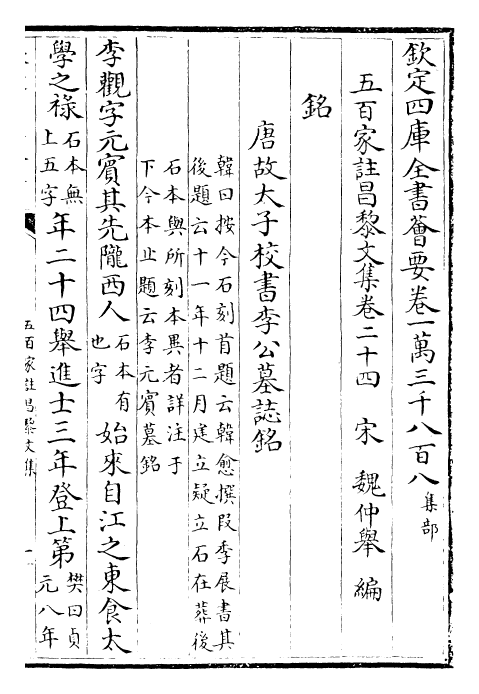 欽定四庫全書薈要卷一萬三千八百八 集部
五百家註昌黎文集卷二十四 宋 魏仲舉 編
銘
唐故太子校書李公墓誌銘
韓曰按今石刻首題云韓愈撰段季展書其
後題云十一年十二月建立疑立石在葬後
石本與所刻本異者詳注于
下今本止題云李元賓墓銘
李觀字元賓其先隴西人石本有
也字始來自江之東食太
學之祿石本無
上五字年二十四舉進士三年登上第樊曰貞
元八年
五百家註昌黎文集 一